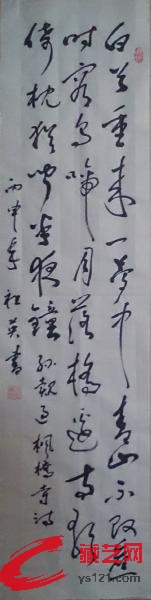 白首重来一梦中青山不改旧
时容乌啼月落桥边寺
倚枕犹闻半夜钟 孙觌过枫桥寺诗
丙申年 社英书
藏艺网
ys121.com